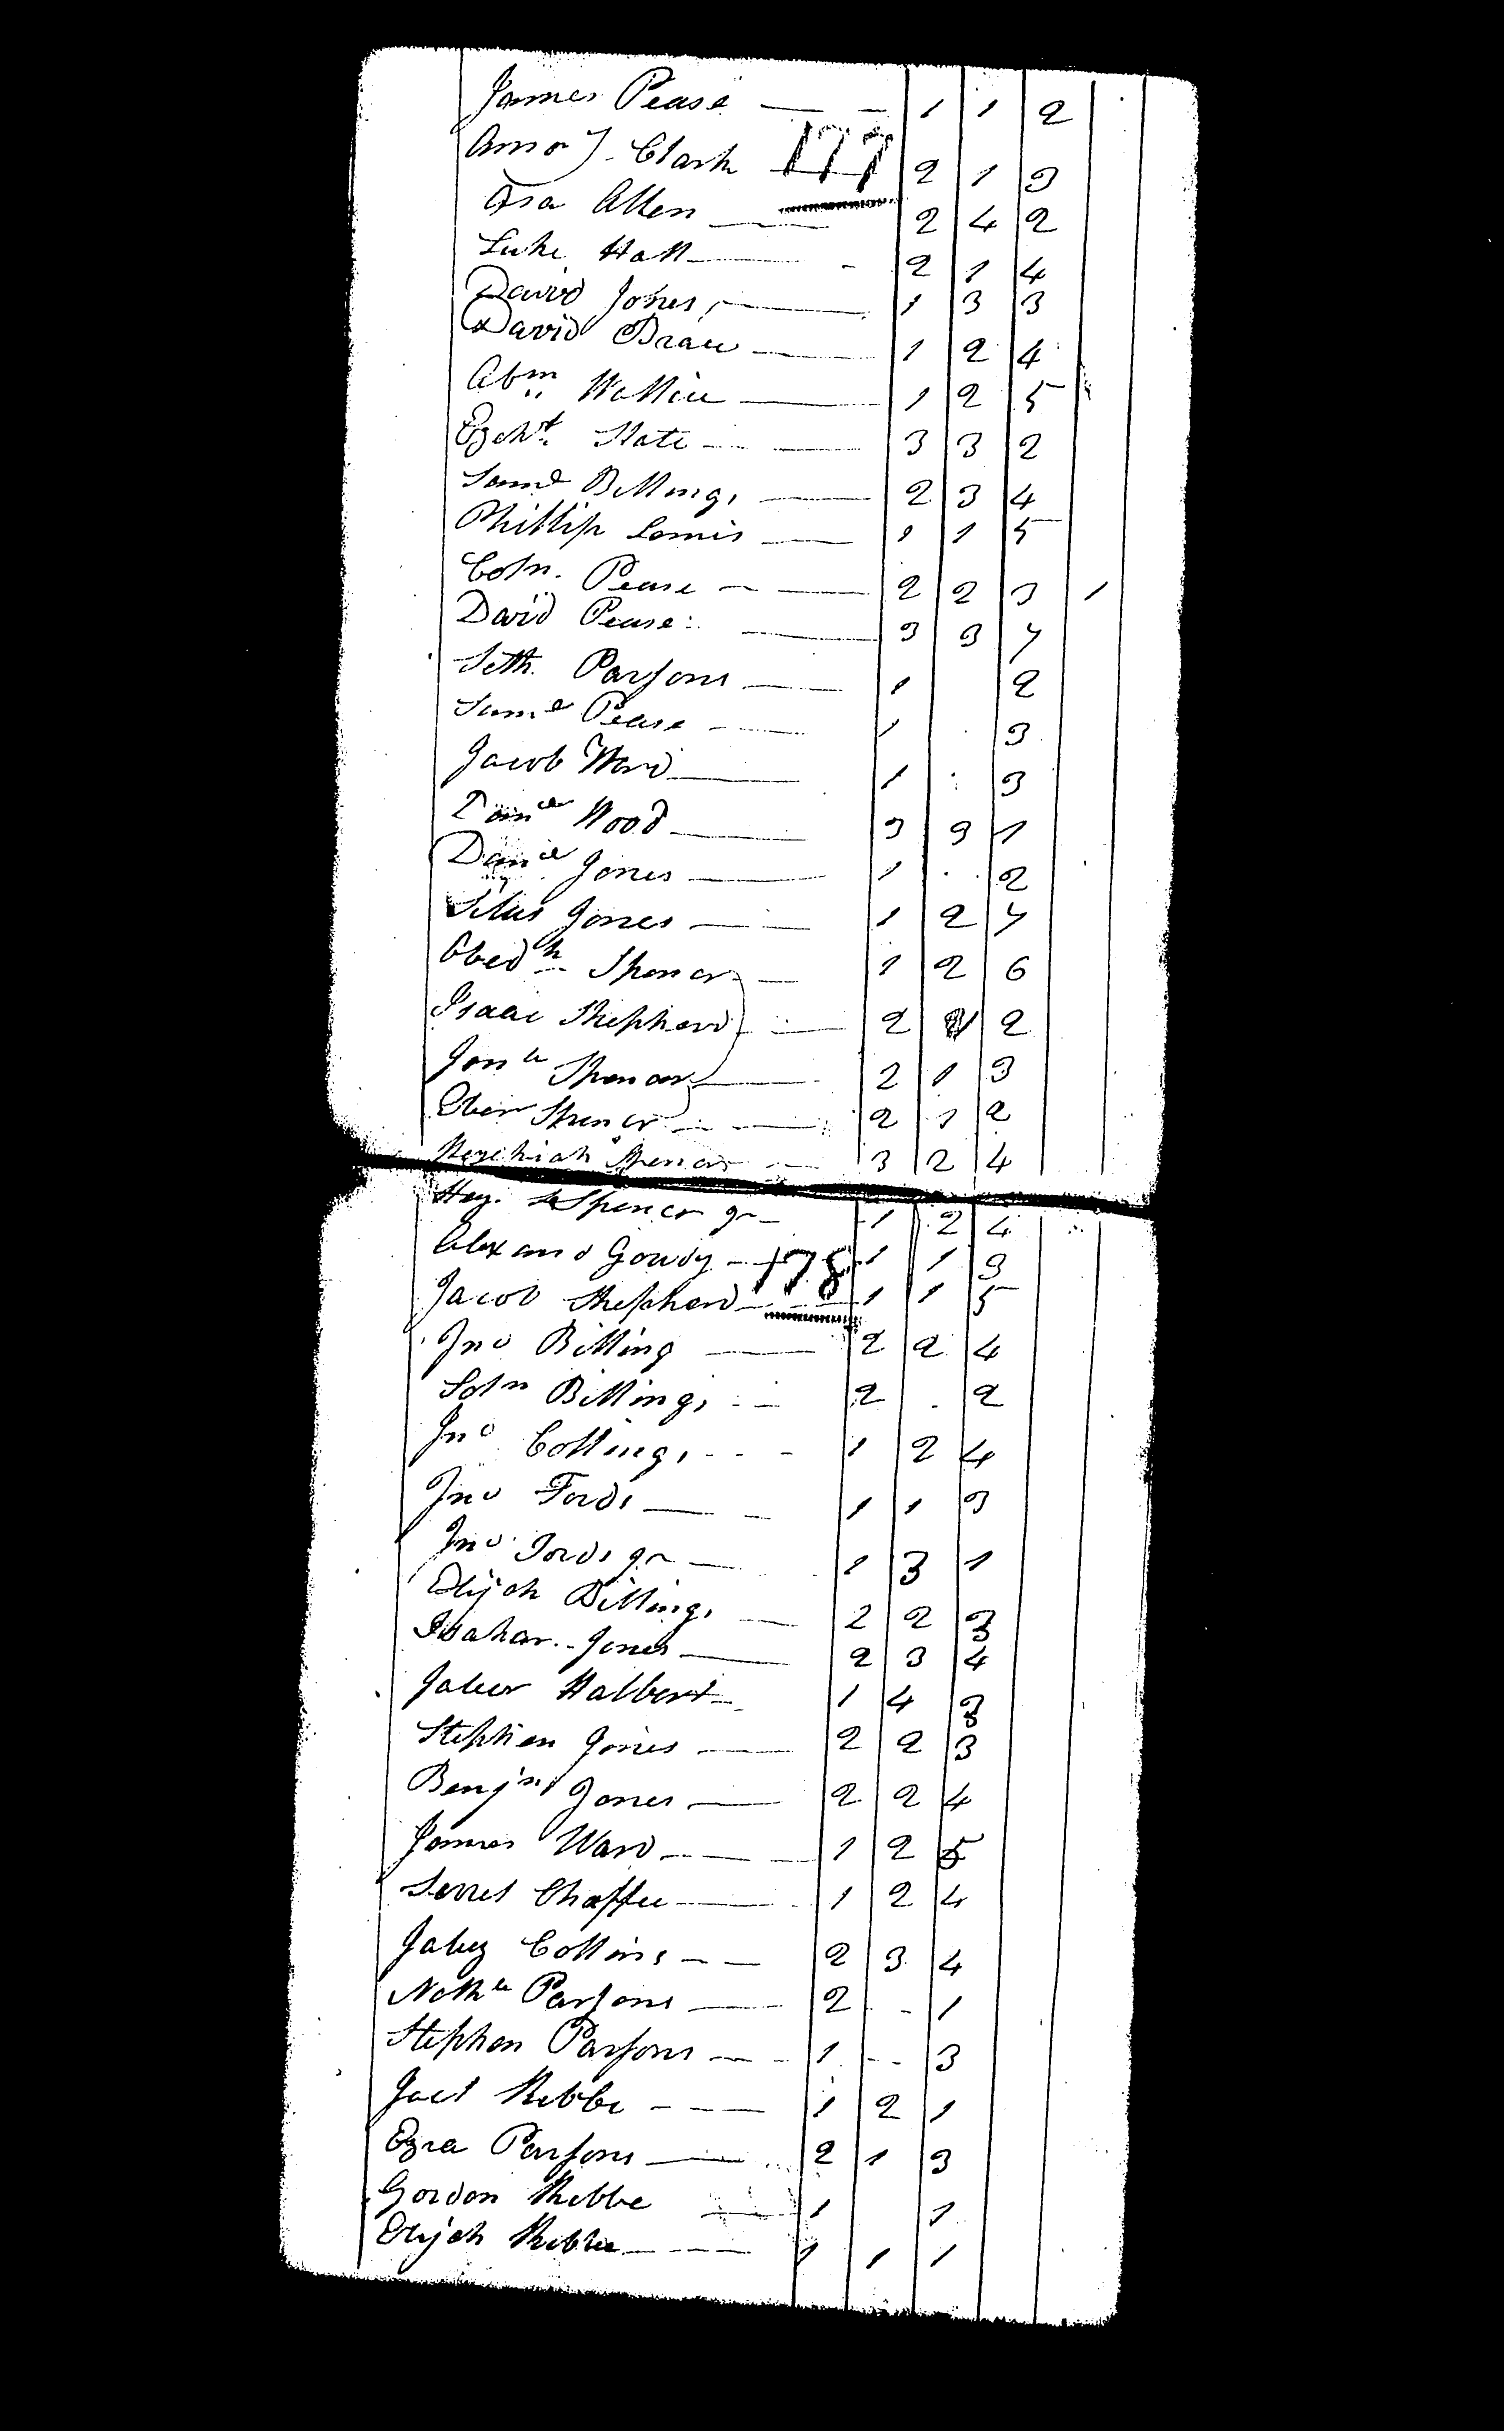 James Pease 1 1 2
177
Amos J. Clark 2 1 3
Asa Allen 2 4 2
Luke Hall 2 1 4
David Jones 1 3 3
David Brace 1 2 4
Abm Wallice 1 2 5
3 3 2
Saml Billings 2 3 4
Phillip Lomis 1 1 5
Coln. Pease 2 2 3 1
David Pease 3 3 7
Seth Parsons 1 2
Saml Pease 1 3
Jacob Ward 1 3
Danel Wood 3 3 1
Danel Jones 1 2
Silus Jones 1 2 7
Obedh Spencer 1 2 6
Isaac Shepherd 2 2
Jona Spencer 2 1 3
Eber Spencer 2 1 2
Hezekiah Spencer 3 2 4
Hez. Spencer Jr 1 2 4
178
Alexand Gowdy 1 1 3
Jacob Shepherd 1 1 5
Jno Billing 2 2 4
Soln Billings 2 2
Jno Collings 1 2 4
Jno Fords 1 1 3
Jno Fords Jr 1 3 1
Elijah Billings 2 2 3
Isahar Jones 2 3 4
Halbert 1 4 3
Stephen Jones 2 2 3
Benjn Jones 2 2 4
James Ward 1 2 5
Chaffee 1 2 4
Jabez Collins 2 3 4
Nathl Parsons 2 1
Stephen Parsons 1 3
Joel Kibbe 1 2 1
Ezra Parsons 2 1 3
Gordon Kibbe 1 1
Elijah Kibbe 1 1 1